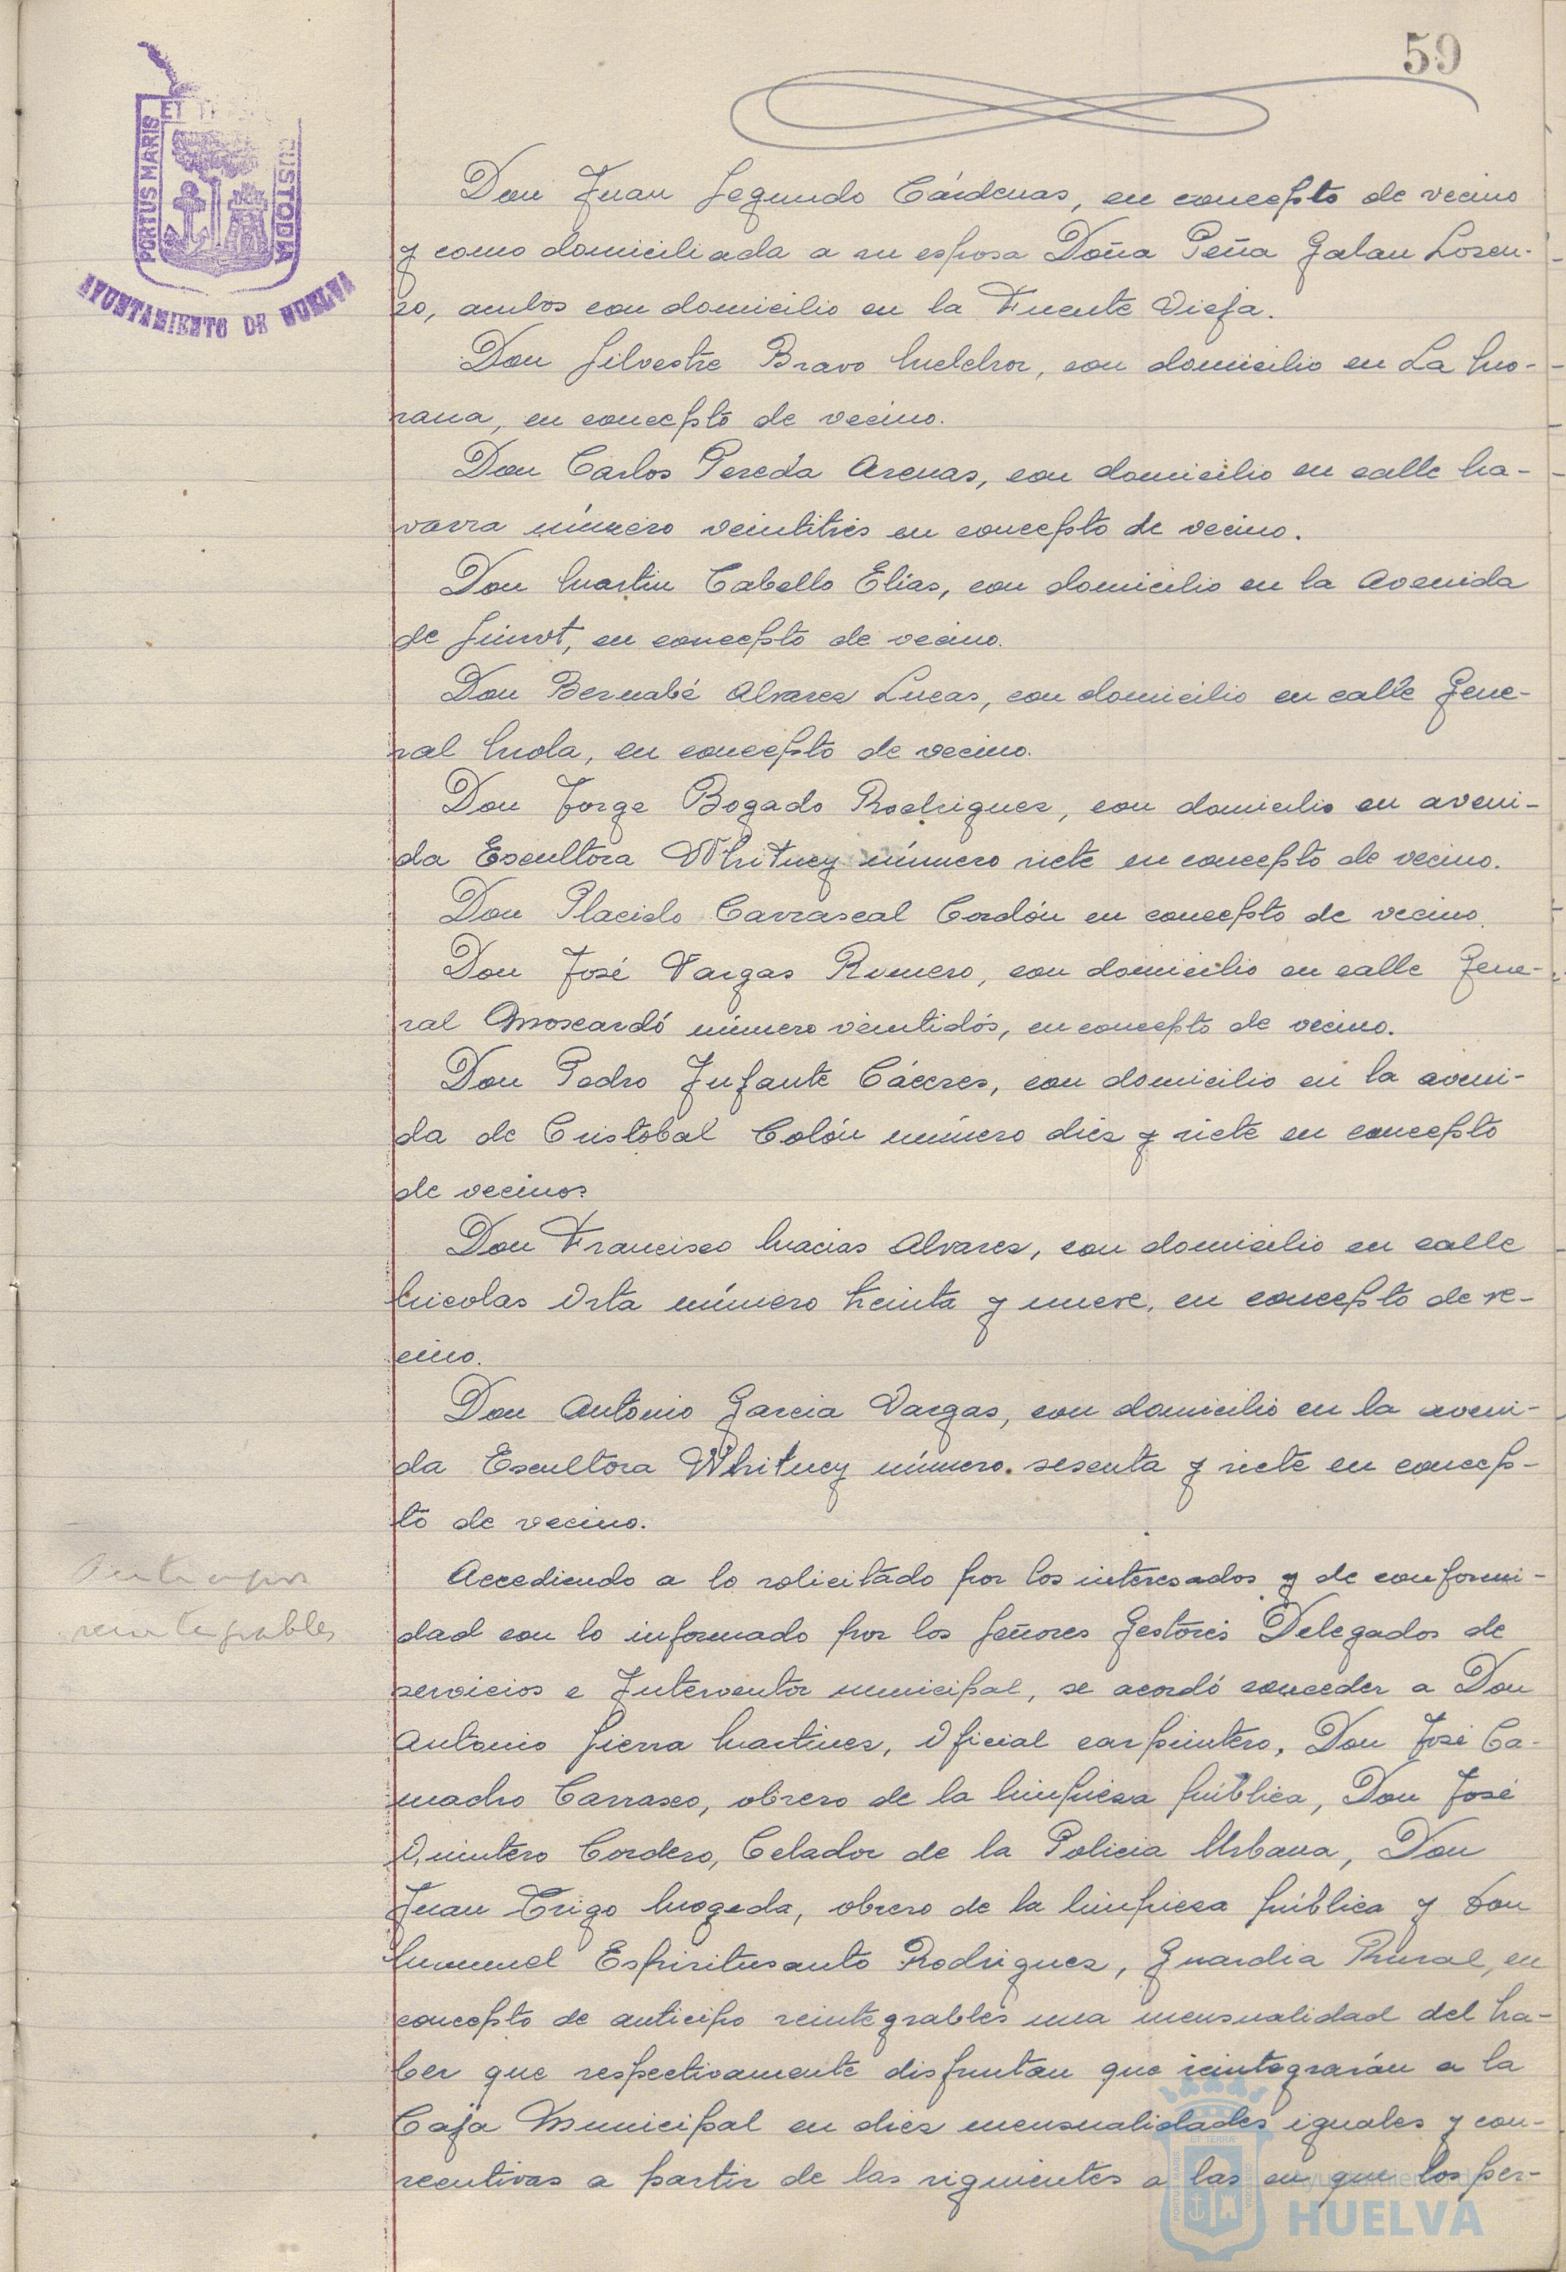 59
PORTUS MARIS
ET TERRAE
CUSTODIA
AYUNTAMIENTO DE HUELVA
Don Juan Segundo Cárdenas, en concepto de vecino
y como domiciliada a su esposa Doña Peña Galan Loren-
zo, ambos con domicilio en la Fuente Vieja.
Don Silvestre Bravo Melchor, con domicilio en La Mo-
rana, en concepto de vecino.
Don Carlos Pereda Arenas, con domicilio en calle Na-
varra número veintitrés en concepto de vecino.
Don Martin Cabello Elías, con domicilio en la Avenida
de , en concepto de vecino.
Don Bernabé Alvarez Lucas, con domicilio en calle Gene-
ral Mola, en concepto de vecino.
Don Jorge Bogado Rodriguez, con domicilio en aveni-
da Escultora Whitney número siete en concepto de vecino.
Don Placido Carrascal Cordón en concepto de vecino
Don José Vargas Romero, con domicilio en calle Gene-
ral Moscardó número veintidós, en concepto de vecino.
Don Pedro Infante Cáceres, con domicilio en la aveni-
da de Cristobal Colón número diez y siete en concepto
de vecinos
Don Francisco Macias Alvarez, con domicilio en calle
Nicolas Orta número treinta y nueve, en concepto de ve-
cino.
Don Antonio Garcia Vargas, con domicilio en la aveni-
da Escultora Whitney número. sesenta y siete en concep-
to de vecino.
Anticipos
reintegrables
Accediendo a lo solicitado por los interesados y de conformi-
dad con lo informado por los Señores Gestores Delegados de
servicios e Interventor municipal, se acordó conceder a Don
Antonio Sierra Martinez, Oficial carpintero, Don José Ca-
macho Carrasco, obrero de la limpieza pública, Don José
Quintero Cordero, Celador de la Policia Urbana, Don
Juan Trigo Mogeda, obrero de la limpieza pública y Don
Manuel Espiritusanto Rodriguez, Guardia Rural, en
concepto de anticipo reintegrables una mensualidad del ha-
ber que respectivamente disfrutan que reintegrarán a la
Caja Municipal en diez mensualidades iguales y con-
secutivas a partir de las siguientes a las en que los per-
Ayuntamiento de
HUELVA